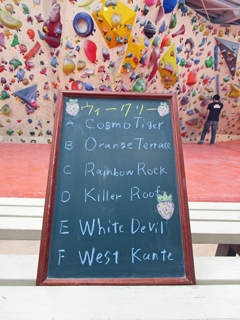 ウィークリー
A Cosmo Tiger
B Orange Terrace
C Rainbow Rock
D Killer Roof
E White Devil
F West Kante